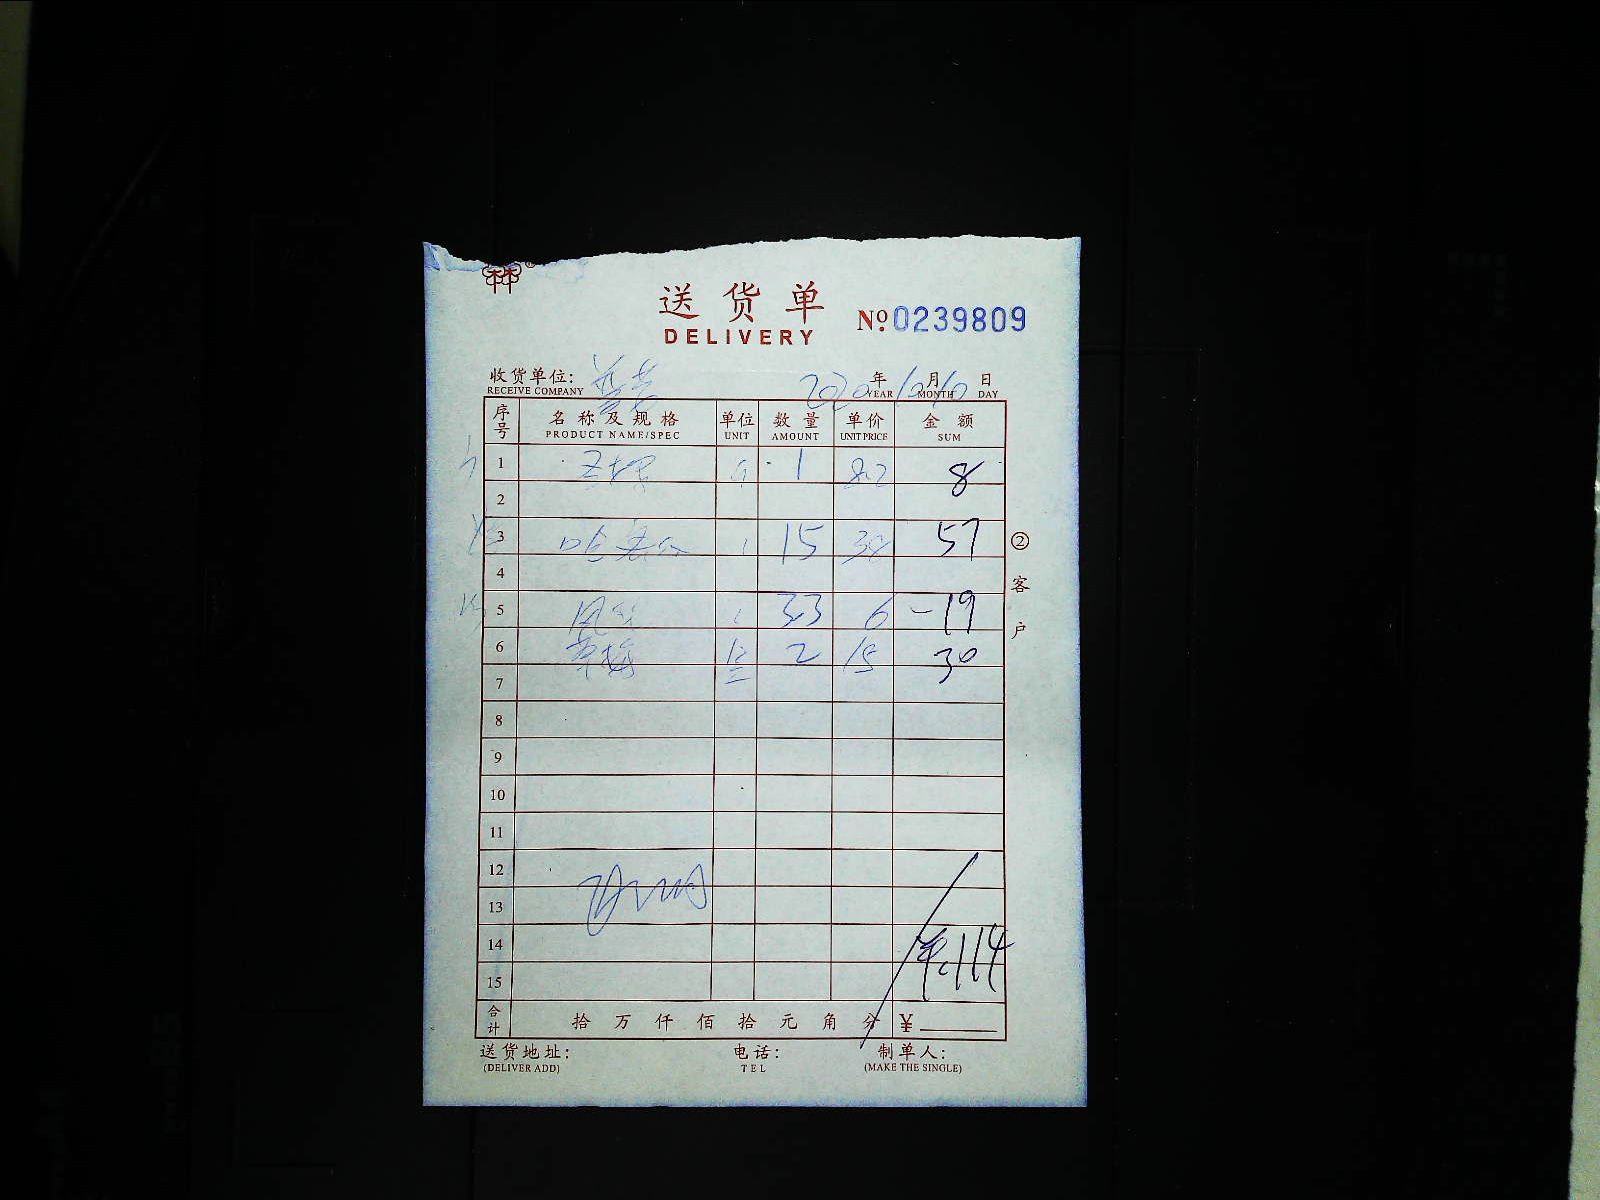 送货单
DELIVERY
№ 0239809
收货单位: 2020年12月10日
RECEIVE COMPANY YEAR MONTH DAY
序号 名称及规格 单位 数量 单价 金额
PRODUCT NAME/SPEC UNIT AMOUNT UNIT PRICE SUM
1 个 1 8
2
3 哈密瓜 15 38 57
4
5 33 6 -19
6 草梅 2 15 30
7
8
9
10
11
12
13
14 ¥:114
15
合计 拾 万 仟 佰 拾 元 角 分 ¥
送货地址: 电话: 制单人:
(DELIVER ADD) TEL (MAKE THE SINGLE)
② 客户